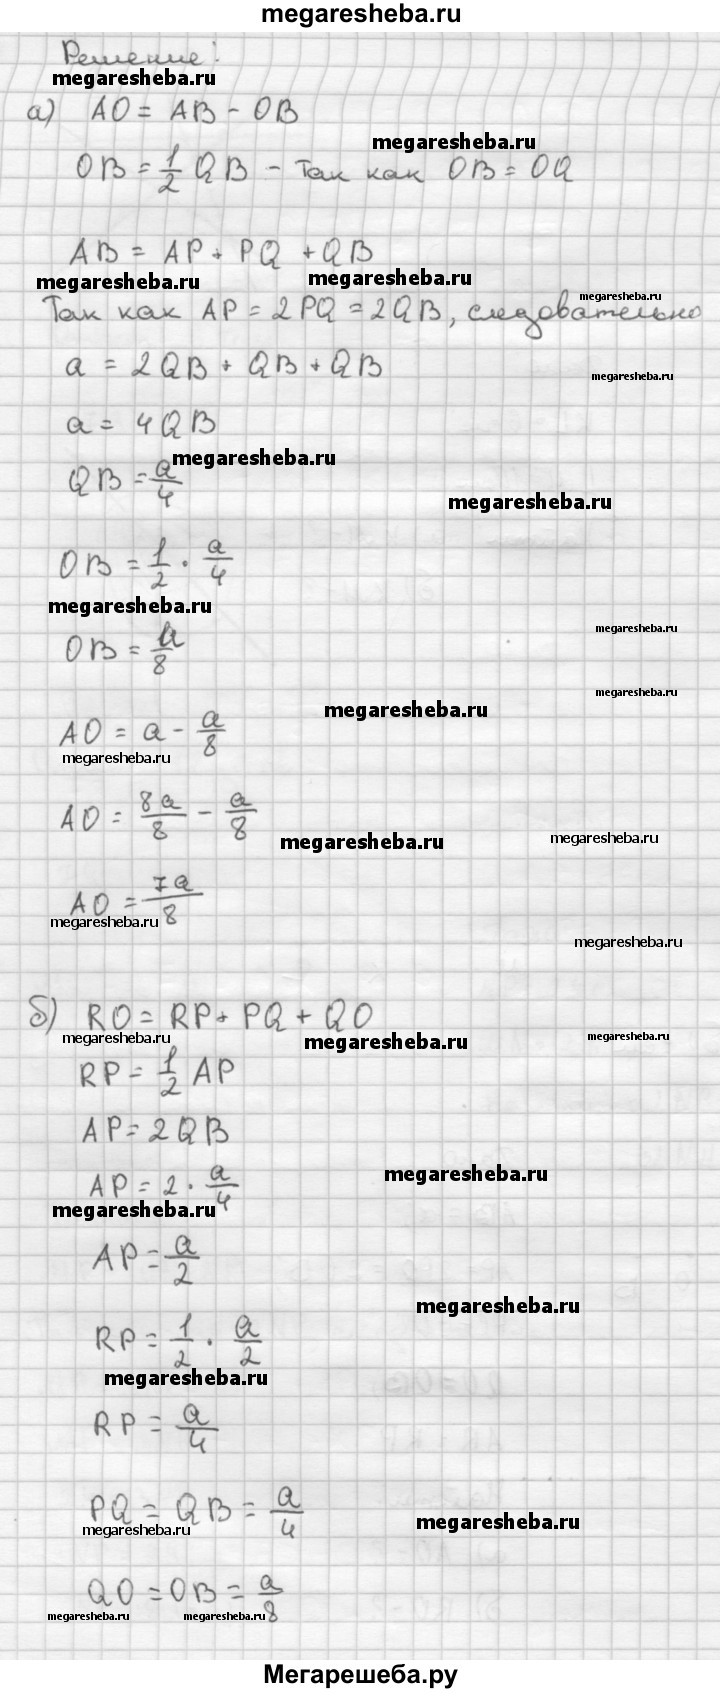 megaresheba.ru
Решение:
megaresheba.ru
а) AO = AB - OB
megaresheba.ru
OB = 1/2 QB - так как OB = OQ
AB = AP + PQ + QB
megaresheba.ru megaresheba.ru
megaresheba.ru
Так как AP = 2PQ = 2QB, следовательно
a = 2QB + QB + QB
megaresheba.ru
a = 4QB
megaresheba.ru
QB = a/4
megaresheba.ru
OB = 1/2 · a/4
megaresheba.ru
megaresheba.ru
OB = a/8
megaresheba.ru
megaresheba.ru
AO = a - a/8
megaresheba.ru
AO = 8a/8 - a/8
megaresheba.ru megaresheba.ru
AO = 7a/8
megaresheba.ru
megaresheba.ru
б) RO = RP + PQ + QO
megaresheba.ru megaresheba.ru megaresheba.ru
RP = 1/2 AP
AP = 2QB
megaresheba.ru
AP = 2 · a/4
megaresheba.ru
AP = a/2
megaresheba.ru
RP = 1/2 · a/2
megaresheba.ru
RP = a/4
PQ = QB = a/4
megaresheba.ru megaresheba.ru
QO = OB = a/8
megaresheba.ru megaresheba.ru
Мегарешеба.ру